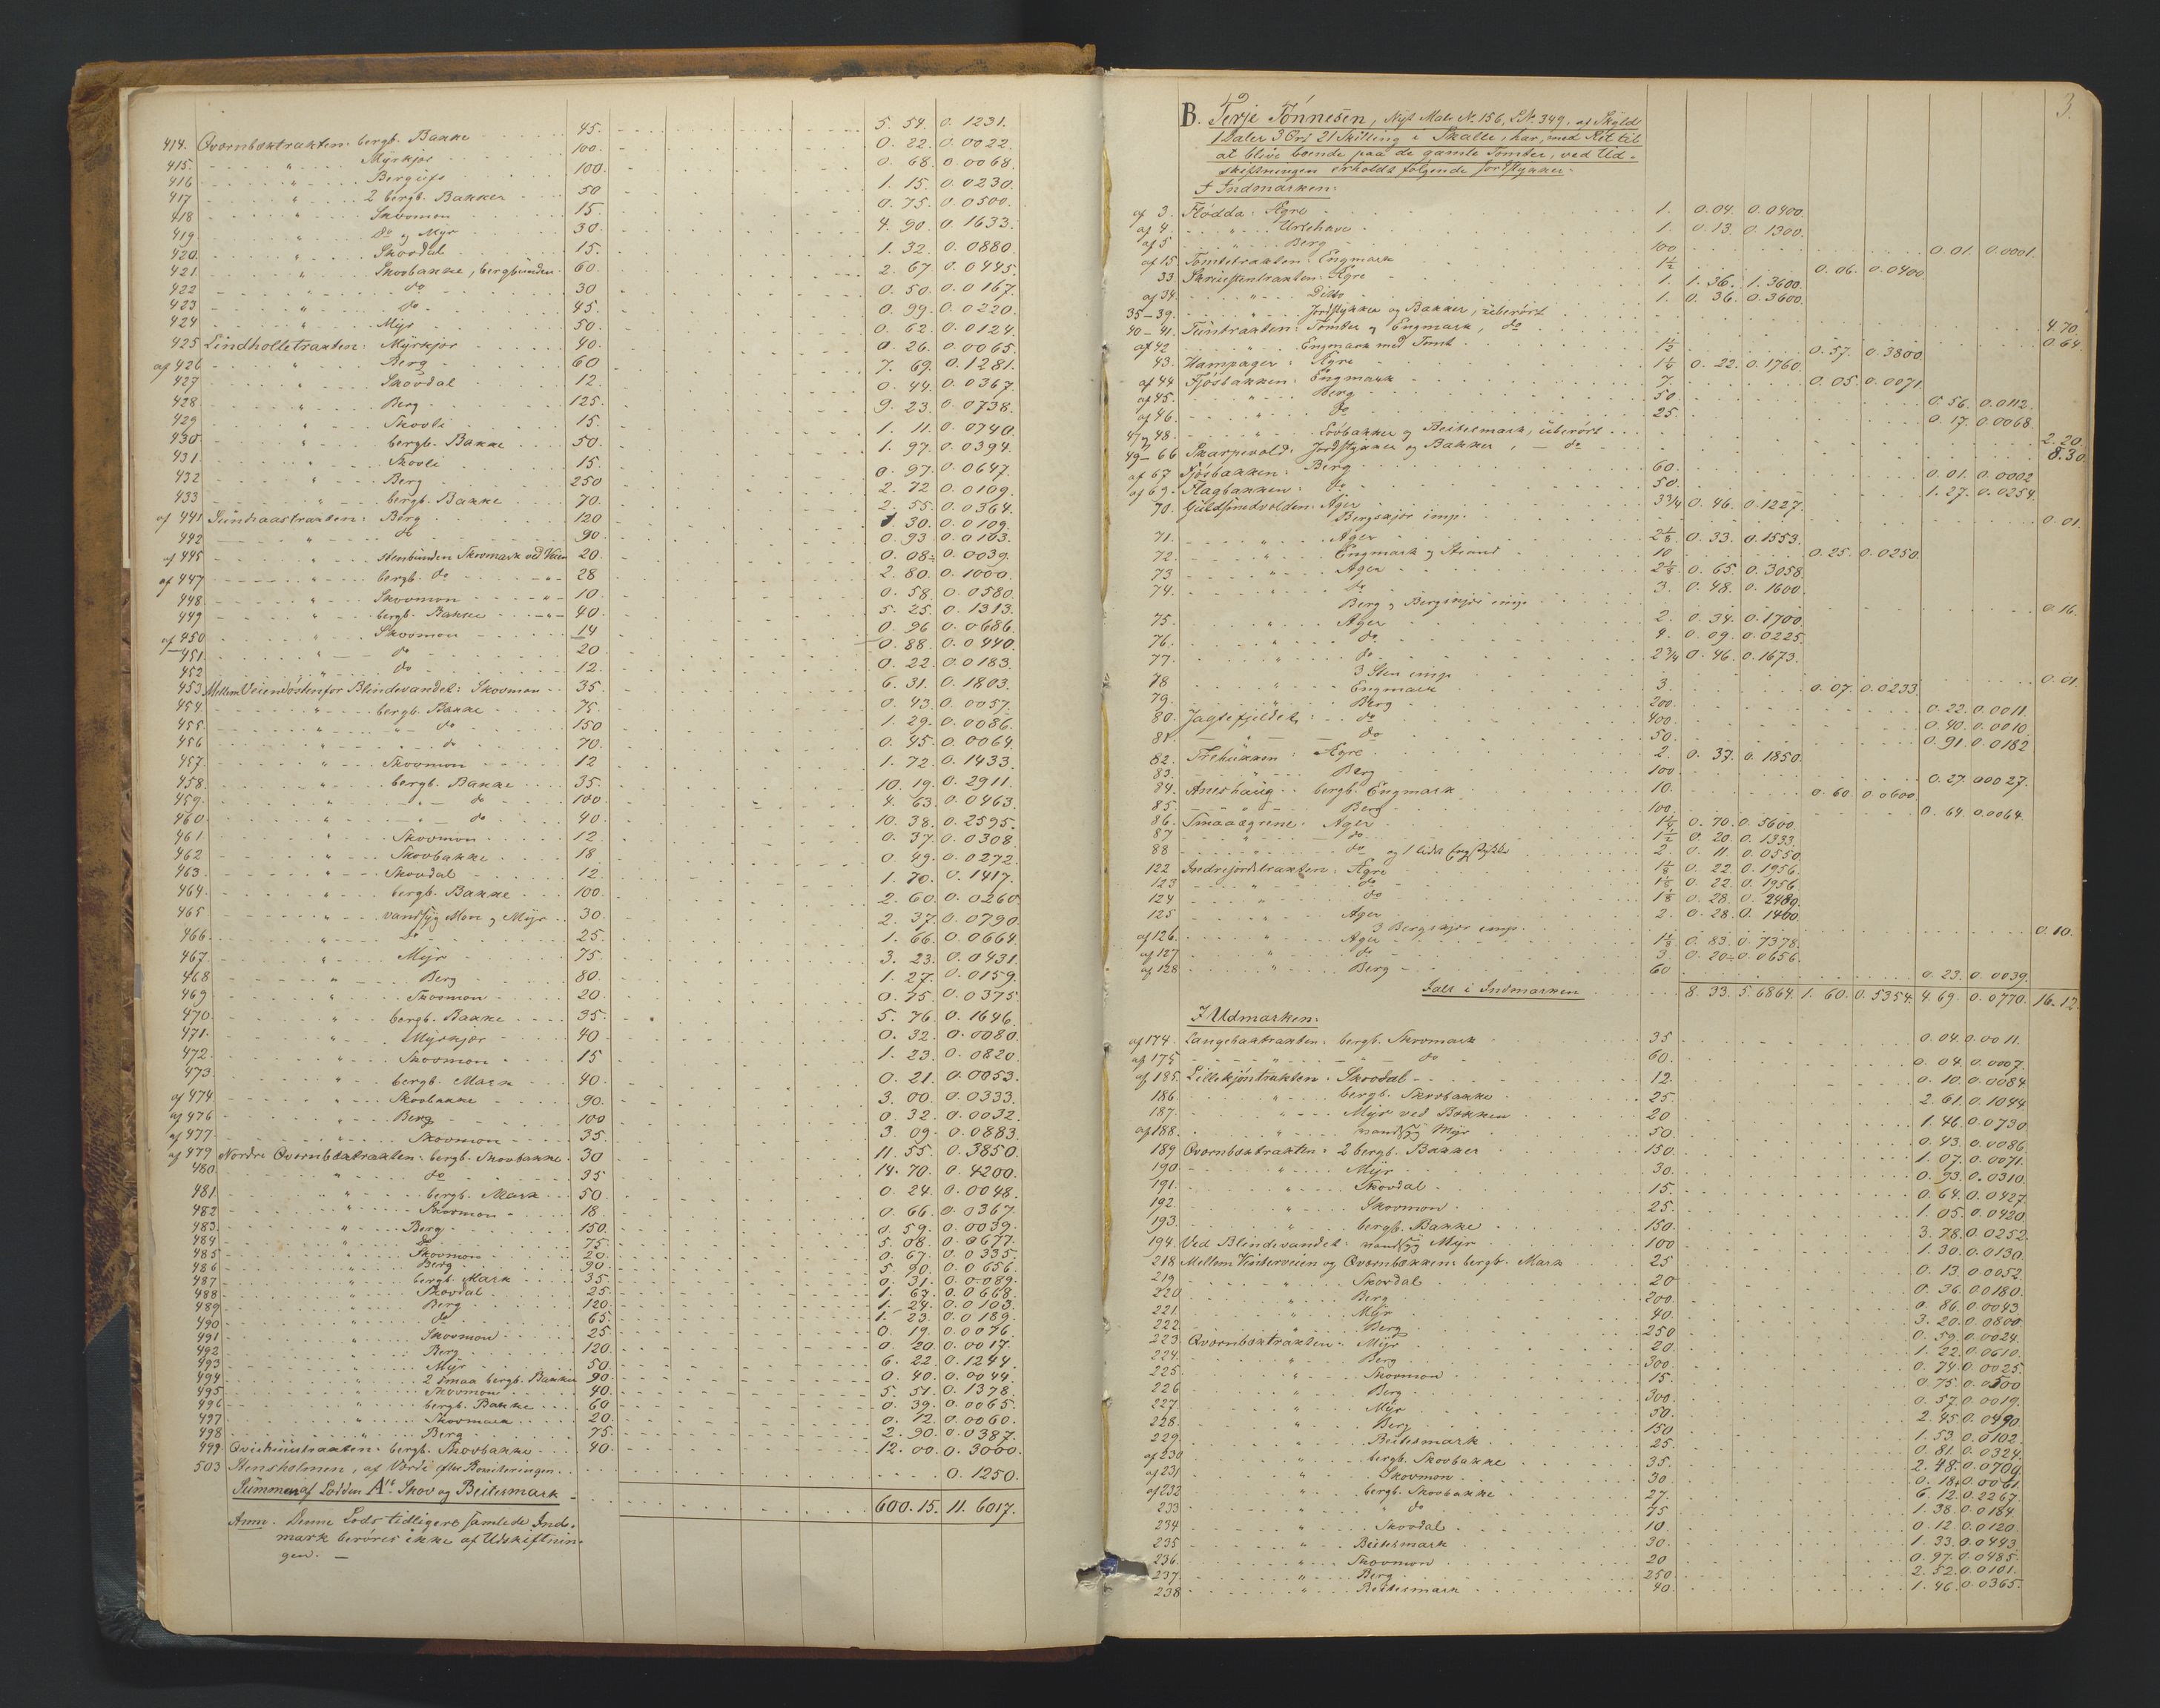 414. Qvornboxtraxten: bergb. Baxxe 45. 5. 54. 0. 1231.
415. " Myrxjør 100. 0. 22. 0. 0022.
416 " Bergufs 100. 0. 68. 0. 0068.
417 " 2 bergb. Baxxer 50 1. 15. 0. 0230.
418 " Skovmon 15. 0. 75. 0. 0500.
419. " do og Myr 30. 4. 90. 0. 1633.
420. " Skovdal 15. 1. 32. 0. 0880.
421. " Skovbaxxe, bergbunden. 60. 2. 67. 0. 0445.
422 " do 30 0. 50. 0. 0167.
423 " do 45. 0. 99. 0. 0220.
424 " Myr 50. 0. 62. 0. 0124.
425 Lindholletraxten: Myrxjør 40. 0. 26. 0. 0065.
af 426 " Berg 60 7. 69. 0. 1281.
427 " Skovdal 12. 0. 44. 0. 0367.
428 " Berg 125. 9. 23. 0. 0738.
429 " Skovli 15. 1. 11. 0. 0740.
430 " bergb. Baxxe 50. 1. 97. 0. 0394.
431. " Skovli 15. 0. 97. 0. 0647.
432 " Berg 250 2. 72. 0. 0109.
433 " bergb. Baxxe 70. 2. 55. 0. 0364.
af 441 Sundraastraxten: Berg 120 1. 30. 0. 0109.
442 " do 90. 0. 93. 0. 0103.
af 445 " Stenbunden Skovmark ved Veien 20. 0. 08. 0. 0039.
af 447 " bergb. do " 28 2. 80. 0. 1000.
448 " Skovmon " 10. 0. 58. 0. 0580.
449 " bergb. Baxxe " 40. 5. 25. 0. 1313.
af 450 " Skovmon 14 0. 96 0. 0686.
451. " do 20 0. 88. 0. 0440.
452 " do 12. 0. 22. 0. 0183.
453 Mellem Veien østenfor Blindevandet: Skovmon 35. 6. 31. 0. 1803.
454 " bergb. Baxxe 75. 0. 43. 0. 0057.
455. " " do 150 1. 29. 0. 0086.
456 " " do 70. 0. 45. 0. 0064.
457 " Skovmon 12 1. 72. 0. 1433.
458 " bergb. Baxxe 35. 10. 19. 0. 2911.
459. " " do 100. 4. 63. 0. 0463.
460 " " do 40. 10. 38. 0. 2595.
461 " Skovmon 12 0. 37. 0. 0308.
462 " Skovbaxxe 18 0. 49. 0. 0272.
463 " Skovdal 12. 1. 70. 0. 1417.
464 " bergb. Baxxe 100. 2. 60. 0. 0260.
465 " vandsyg Mon og Myr 30. 2. 37. 0. 0790.
466 " do 25. 1. 66. 0. 0664.
467. " Myr 75. 3. 23. 0. 0431.
468 " Berg 80. 1. 27. 0. 0159.
469 " Skovmon 20. 0. 75. 0. 0375.
470. " bergb. Baxxe 35. 5. 76. 0. 1646.
471. " Myrxjør 40 0. 32. 0. 0080.
472. " Skovmon 15 1. 23. 0. 0820.
473. " bergb. Mark 40. 0. 21. 0. 0053.
af 474 " Skovbaxxe 90. 3. 00. 0. 0333.
af 476 " Berg 100 0. 32. 0. 0032.
af 477 " Skovmon 35. 3. 09. 0. 0883.
af 479 Nordre Qvornboxtraxten: bergb. Skovbaxxe 30 11. 55. 0. 3850.
480. " do 35 14. 70. 0. 4200.
481. " bergb. Mark 50. 0. 24. 0. 0048.
482 " Skovmon 18. 0. 66. 0. 0367.
483. " Berg 150. 0. 59. 0. 0039.
484 " do 75. 5. 08. 0. 0677.
485 " Skovmon 20. 0. 67. 0. 0335.
486 " Berg 90. 5. 90. 0. 0656.
487 " bergb. Mark 35. 0. 31. 0. 0089.
488 " Skovdal 25. 1. 67. 0. 0668.
489 " Berg 120. 1. 24. 0. 0103.
490 " do 65. 1. 23. 0. 0189.
491 " Skovmon 25. 0. 19. 0. 0076.
492 " Berg 120. 0. 20. 0. 0017.
493 " Myr 50. 6. 22. 0. 1244.
494 " 2 smaa bergb. Baxxer 90. 0. 40. 0. 0044.
495 " Skovmon 40. 5. 51. 0. 1378.
496 " bergb. Baxxe 60 0. 39. 0. 0065.
497 " Skovmark 20. 0. 12. 0. 0060.
498 " Berg 75. 2. 90. 0. 0387.
499 bergb. Skovbaxxe 40. 12. 00. 0. 3000.
503 Stensholmen, af Værdi efter Boniteringen. 0. 1250.
Summen af Lodden A's Skov og Beitesmark 600. 15. 11. 6017.
Anm. Denne Lods tidligere samlede Ind-
mark berøres ikke af Udskiftnin-
gen. —
3.
B. Terje Tønnesen, Nyt Matr. No. 156, LN. 349, af Skyld
1 Daler 3 Ort 21 Skilling i Skalle, har, med Ret til
at blive boende paa de gamle Tomter, ved Ud-
skiftningen erholdt følgende Jordstykker.
I Indmarken:
af 3. Flödda: Agre 1. 0. 04. 0. 0400.
af 4. " Urtehave 1. 0. 13. 0. 1300.
af 5 " Berg 100 0. 01. 0. 0001.
af 15. Tomtetraxten: Engmark 1½ 0. 06. 0. 0400.
33. Skriustentraxten: Agre 1. 1. 36. 1. 3600.
af 34. " Ditto 1. 0. 36. 0. 3600.
35–39. " Jordstykker og Baxxer, uberørt 4. 70.
40–41. Tuntraxten: Tomter og Engmark, do 0. 64.
af 42 " Engmark med Tomt 1½ 0. 57. 0. 3800.
43. Hampager: Agre 1¼ 0. 22. 0. 1760.
af 44 Fjøsbaxxen: Engmark 7. 0. 05. 0. 0071.
af 45. " Berg 50. 0. 56. 0. 0112.
af 46. " do 25. 0. 17. 0. 0068.
47 og 48. " Løvbaxxer og Beitesmark, uberørt 2. 20.
49–66 Skarpevold: Jordstykker og Baxxer, do 8. 30.
af 67 Fjøsbaxxen: Berg 60. 0. 01. 0. 0002
af 69. Flagbaxxen: do 50. 1. 27. 0. 0254.
70. Guldsmedvolden: Ager 3¾ 0. 46. 0. 1227.
Bergskjør imp. 0. 01.
71. " Ager 2⅛ 0. 33. 0. 1553.
72. " Engmark og Strand 10 0. 25. 0. 0250.
73 " Ager 2⅛ 0. 65. 0. 3058.
74. " do 3. 0. 48. 0. 1600.
Berg og Bergskjør imp. 0. 16.
75. " Ager 2. 0. 34. 0. 1700.
76. " do 4. 0. 09. 0. 0225.
77. " do 2¾ 0. 46. 0. 1673.
3 Sten imp. 0. 01.
78 " Engmark 3. 0. 07. 0. 0233.
79. " Berg 200. 0. 22. 0. 0011.
80. Jagtefjeldet: do 400. 0. 40. 0. 0010.
81. " do 50. 0. 91. 0. 0182
82. Agre 2. 0. 37. 0. 1850.
83. " Berg 100. 0. 27. 0. 0027.
84. bergb. Engmark 10. 0. 60. 0. 0600.
85. " Berg 100. 0. 64. 0. 0064.
86. Smaaagrene: Ager 1¼ 0. 70. 0. 5600.
87 " do 1½ 0. 20. 0. 1333.
88 " do og 1 lidet Engstykke 2. 0. 11. 0. 0550.
122 Indrejordstraxten: Agre 1⅛ 0. 22. 0. 1956.
123 " do 1⅛ 0. 22. 0. 1956.
124 " do 1⅛ 0. 28. 0. 2489.
125 " Ager 2. 0. 28. 0. 1400.
3 Bergskjør imp. 0. 10.
af 126. " Ager 1⅛ 0. 83. 0. 7378.
af 127 " do 3. 0. 20. 0. 0656.
af 128 " Berg 60 0. 23. 0. 0039.
Ialt i Indmarken 8. 33. 5. 6864. 1. 60. 0. 5354. 4. 69. 0. 0770. 16. 12.
I Udmarken:
af 174. Langebaxtraxten: bergb. Skovmark 35 0. 04. 0. 0011.
af 175 " " do 60. 0. 04. 0. 0007.
af 185. Lillekjøntraxten: Skovdal 12. 0. 10. 0. 0084
186. " bergb. Skovbaxxe 25. 2. 61. 0. 1044
187. " Myr ved Bøxxen 20 1. 46. 0. 0730.
af 188. " vandsyg Myr 50. 0. 43. 0. 0086
189 Qvornboxtraxten: 2 bergb. Baxxer 150. 1. 07. 0. 0071.
190. " Myr 30. 0. 93. 0. 0310.
191. " Skovdal 15. 0. 64. 0. 0427.
192. " Skovmon 25. 1. 05. 0. 0420.
193. " bergb. Baxxe 150. 3. 78. 0. 0252.
194. Ved Blindevandet: vandsyg Myr 100 1. 30. 0. 0130.
218 Mellem Vinterveien og Qvornboxxen: bergb. Mark 25 0. 13. 0. 0052.
219 " Skovdal 20 0. 36. 0. 0180.
220 " Berg 200. 0. 86. 0. 0043.
221. " Myr 40. 3. 20. 0. 0800.
222 " Berg 250 0. 59. 0. 0024.
223. Qvornboxtraxten: Myr 20. 1. 22. 0. 0610.
224. " Berg 300. 0. 74. 0. 0025.
225 " Skovmon 15. 0. 75. 0. 0500
226 " Berg 300. 0. 57. 0. 0019.
227. " Myr 50. 2. 45. 0. 0490.
228. " Berg 150 1. 53. 0. 0102.
229. " Beitesmark 25. 0. 81. 0. 0324.
af 230 " bergb. Skovbaxxe 35. 2. 48. 0. 0709.
af 231 " Skovmon 30 0. 18. 0. 0061.
af 232 " bergb. Skovbaxxe 27. 6. 12. 0. 2267.
233 " do 75 1. 38. 0. 0184
234 " Skovdal 10. 0. 12. 0. 0120.
235 " Beitesmark 30. 1. 33. 0. 0443.
236. " Skovmon 20 0. 97. 0. 0485.
237. " Berg 250 2. 52. 0. 0101.
238 " Beitesmark 40. 1. 46. 0. 0365.